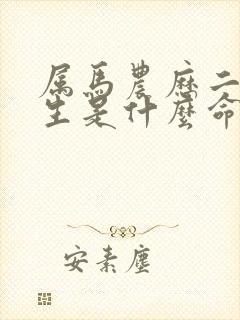 属馬農歷二
生是什麼命
安素塵